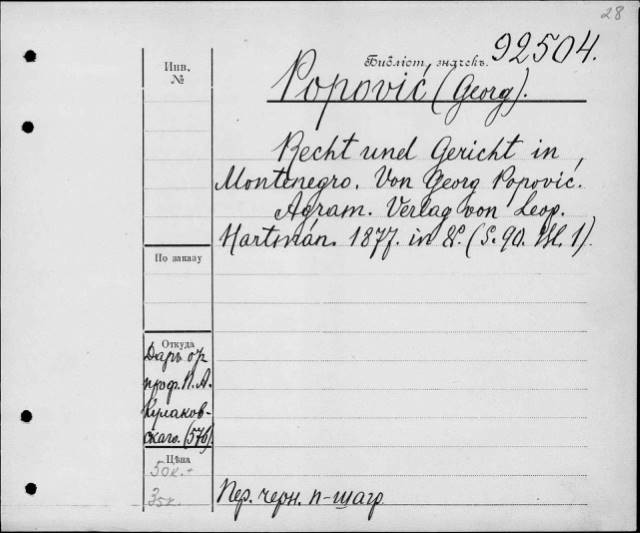 28
Инв.
№
Библіот. значекъ. 92504.
Popović (Georg).
Recht und Gericht in
Montenegro. Von Georg Popović.
Agram. Verlag von Leop.
Hartmán. 1877. in 8°. (S. 90. Bl. 1).
По заказу
Откуда
Даръ от
проф. П. А.
Кулаков-
скаго. (576).
Цѣна
50к.-
35к.
Пер. черн. п-шагр